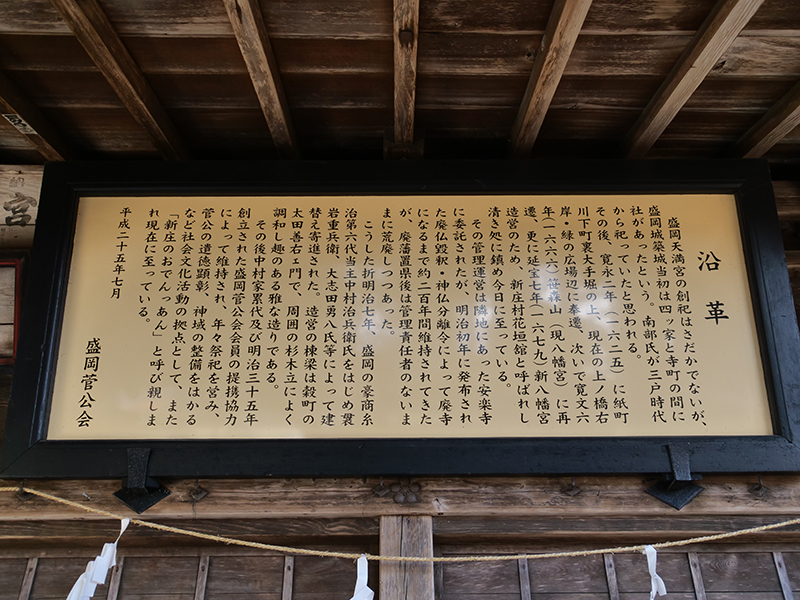 沿革
盛岡天満宮の創祀はさだかでないが、
盛岡城築城当初は四ッ家と寺町の間に
社があったという。南部氏が三戸時代
から祀っていたと思われる。
その後、寛永二年（一六二五）に紙町
川下町裏大手堀の上、現在の上ノ橋右
岸・緑の広場辺に奉遷、次いで寛文六
年（一六六六）笹森山（現八幡宮）に再
遷、更に延宝七年（一六七九）新八幡宮
造営のため、新庄村花垣舘と呼ばれし
清き処に鎮め今日に至っている。
その管理運営は隣地にあった安楽寺
に委託されたが、明治初年に発布され
た廃仏毀釈・神仏分離令によって廃寺
になるまで約二百年間維持されてきた
が、廃藩置県後は管理責任者のないま
まに荒廃しつつあった。
こうした折明治七年、盛岡の豪商糸
治第六代当主中村治兵衛氏をはじめ
岩重兵衛、大志田勇八氏等によって建
替え寄進された。造営の棟梁は穀町の
太田善右ェ門で、周囲の杉木立によく
調和し趣のある雅な造りである。
その後中村家累代及び明治三十五年
創立された盛岡菅公会会員の提携協力
によって維持され、年々祭祀を営み、
菅公の道徳顕彰、神域の整備をはかる
など社会文化活動の拠点として、また
「新庄のおでんつぁん」と呼び親しま
れ現在に至っている。
平成二十五年七月
盛岡菅公会
宮